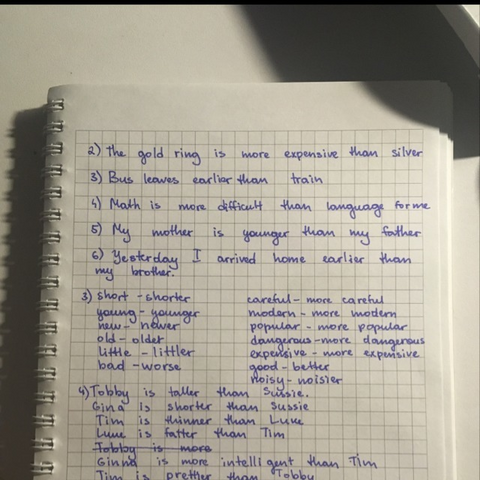 2) The gold ring is more expensive than silver
3) Bus leaves earlier than train
4) Math is more difficult than language for me
5) My mother is younger than my father
6) Yesterday I arrived home earlier than
my brother.
3) short - shorter
young - younger
new - newer
old - older
little - littler
bad - worse
careful - more careful
modern - more modern
popular - more popular
dangerous - more dangerous
expensive - more expensive
good - better
noisy - noisier
4) Tobby is taller than Sussie.
Gina is shorter than Sussie
Tim is thinner than Luke
Luke is fatter than Tim
Tobby is more
Ginna is more intelligent than Tim
Tim is prettier than Tobby